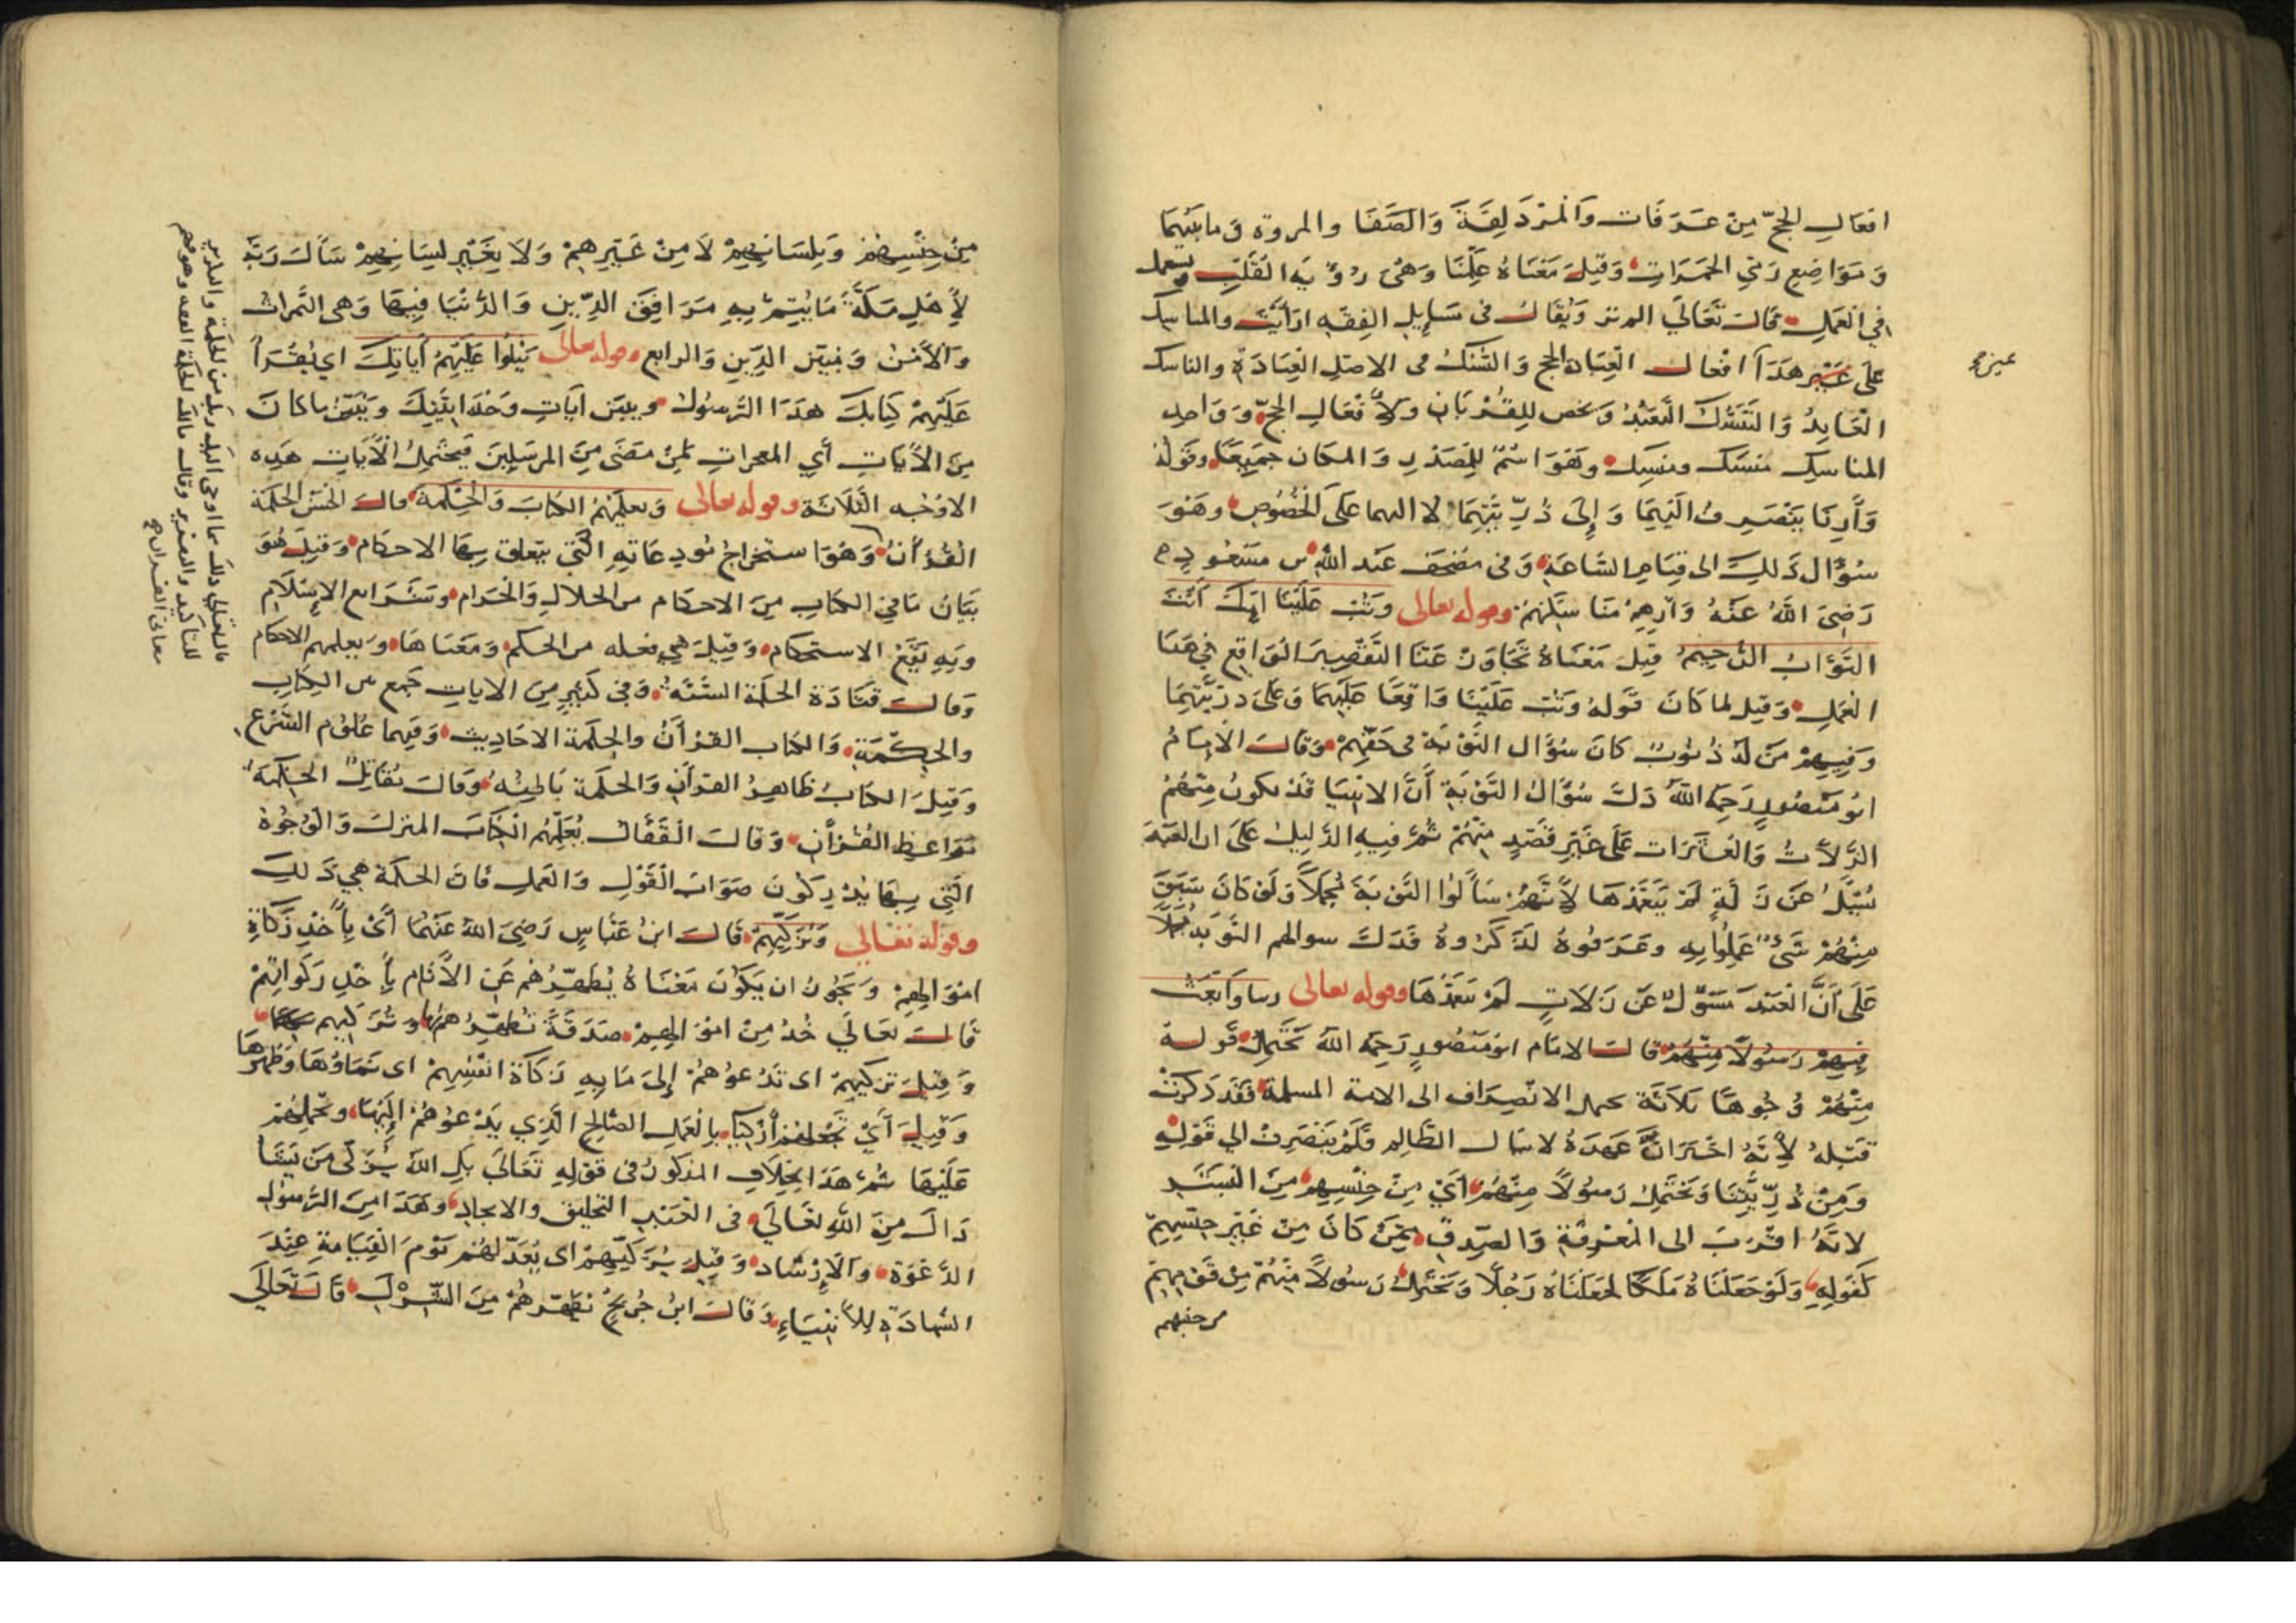 افعال الحجّ مِنْ عَرَفَات وَالمُزْدَلِفَةِ وَالصَّفَا والمروة وَمابَيْنَهُمَا
وَمَوَاضِعِ رَمْيِ الجَمَرَاتِ وَقِيلَ مَعْنَاهُ عَلِّمْنَا وَهْىَ رُؤْيَةُ القَلْبِ ويستعمل
في العِلْمِ قَالَ تَعَالَي الم تر وَيُقَالُ فى مَسَايِلِ الفِقهِ ارَأيْتَ والمناسك
عَلَى هَذَا افْعَال الحج وَالنُّسُكُ فى الاصْلِ العِبَادَة والناسك
العَابِدُ وَالتَنَسُّكُ التَّعَبُّدُ وَيخص لِلقُرْبَانِ ولأَفْعَالِ الحَجِّ وَوَاحِد
المناسِكِ منسَك ومنسِك وَهُوَ اسْمٌ لِلمَصْدَرِ وَالمكَان جَمِيعًا وقَولُهُ
وَأَرِنَا يَنْصَرِفُ الَيْهِمَا وَإِلَى ذُرِّيَّتِهِمَا لا اليهما عَلَى الخُصُوصِ وهُوَ
سُؤَال ذَلِكَ الى قِيَامِ السَّاعَةِ وَفى مُصْحَفِ عَبْد اللَّهِ بن مسْعُودٍ
رَضِىَ اللَّهُ عَنْهُ وَأَرِهِمْ مَنَاسِكَهُمْ وقوله تعالى وَتُبْ عَلَيْنَا انَّكَ أَنْتَ
التَّوَّابُ الرَّحِيمُ قِيلَ مَعْنَاهُ تَجَاوَزْ عَنَّا التَّقْصِيرَ الوَاقِعَ فِي هَذَا
العَمَلِ وَقِيلَ لما كَانَ قَولهُ وَتُبْ عَلَيْنَا وَاقِعًا عَلَيْهِمَا وَعَلَى ذرِّيَّتِهِمَا
وَفِيهِمْ مَنْ لَهُ ذُنُوبٌ كَانَ سُؤَال التَّوْبَة فى حَقِّهِمْ وَقَالَ الامَامُ
ابُو مَنْصُورٍ رَحِمَهُ اللَّهُ دَلَّ سُؤَالُ التَّوْبَةِ أَنَّ الانبِيَا قَدْ يكونُ مِنْهُمُ
الزَّلاَّتُ وَالعَثَرَات عَلَى غَيْرِ قَصْدٍ مِنْهُمْ ثُمَّ فِيهِ الدَّلِيلُ عَلَى ان العَبْدَ
يُسْئَلُ عَنْ زَلَّةٍ لَمْ يَتَعَمَّدْهَا لأَنَّهُمْ سَأَلُوا التَّوْبَةَ مُجْمَلاً وَلَوْ كَانَ سَبَقَ
مِنْهُمْ شَىْءٌ عَلِمُوا بِهِ وعَرَفُوهُ لَذَكَرُوهُ فَدَلَّ سوالهم التَّوبَةَ مُجملاً
عَلَى أَنَّ العَبْدَ مَسؤلٌ عَنْ زَلاتٍ لَمْ يَتعَمَّدْهَا وقوله تعالى ربنا وَابْعَثْ
فِيهِمْ رَسُولاً مِنْهُمْ قَالَ الامَام ابُو مَنْصُورٍ رَحِمَهُ اللَّهُ يَحْتَمِلُ قَولهُ
مِنْهُمْ وُجُوهًا ثَلاَثَةً يحمل الانْصِرَاف الى الامة المسلمة فَقَد ذكرَتْ
قَبْلهُ لأَنَّهُ اخْبَرَ انَّ عَهْدَهُ لا ينال الظَّالِم فَلَمْ يَنْصَرِفْ الي قَوْلِهِ
وَمِنْ ذُرِّيَّتِنَا وَيَحْتَمِلُ رَسُولاً مِنْهُمْ أَيْ مِنْ جِنْسِهِمْ مِنَ البَشَرِ
لانَّهُ اقْرَبَ الى المَعْرِفَةِ وَالصِّدقِ مِمَّنْ كَانَ مِنْ غَيْرِ جنْسِهِمْ
كَقَولِهِ وَلَوْ جَعَلْنَاهُ مَلَكًا لَجَعَلْنَاهُ رَجُلاً وَيَحْتَمِلُ رَسُولاً مِنْهُمْ مِنْ قَوْمِهِمْ
من جنسهم
مِنْ جِنْسِهِمْ وَبِلِسَانِهِمْ لاَ مِنْ غَيْرِهِمْ وَلاَ بِغَيْرِ لِسَانِهِمْ سَأَلَ رَبَّهُ
لأَهْلِ مَكَّةَ مَا يُتِمُّ بِهِ مَرَافِقَ الدِّينِ وَالدُّنْيَا فِيهَا وَهى الثَّمراتُ
وَالأَمْنُ وَالرابع وقوله تعالى يَتْلُوا عَلَيْهِمْ أَيَاتِكَ اي يُقْرَأُ
عَلَيْهِمْ كِتَابَكَ هَذَا الرَّسُولُ ويبيّن آيَاتِ وَحْدَانِيَّتِكَ وَيُبَيِّنُ ما كانَ
مِنَ الأيَاتِ أَيِ المعجزات لمَنْ مَضَى مِنَ المرسَلِينَ فَيَحْتَمِلُ الأَيَاتِ هَذِه
الاوْجُه الثَّلاَثَة وقوله تعالى وَيُعلِّمُهُمُ الكتَابَ وَالحِكْمَةَ قال الحَسَن الحكمَة
القُرْأَنُ وَهُوَ استخراجُ التي يتعلق بِهَا الاحكَام وَقِيلَ هُوَ
بَيَانُ مَا فِي الكتَابِ مِنَ الاحكَام من الحَلالِ وَالحَرَام وَشَرَايع الإِسْلاَمِ
وَبِهِ يَقَعُ الاستحكَام وَقِيلَ هِي فعله من الحكم وَمَعْنَاهَا وَيعلمهم الاحكام
وَقَالَ قَتَادَة الحكمَة السُّنَّة وَفى كَثِيرٍ مِنَ الايَاتِ جَمع بين الكِتَابِ
والحِكْمَةِ وَالكتَاب القرْأَنُ والحِكْمَة الاحَادِيث وَفِيهما عُلُوم الشَّرْع
وَقِيلَ الكتَابُ ظَاهِرُ القرْأَنِ وَالحكمَة بَاطِنُهُ وَقَالَ مُقَاتِلٌ الحكمَة
مَوَاعِظ القُرْأَنِ وَقَالَ القَفَّالُ يُعَلِّمُهُم الكِتَابَ المنزلَ وَالوُجُوهَ
الَّتِي بِهَا يُدْرِكُونَ صَوَابَ القَوْلِ وَالعَملِ فَانَّ الحكمَة هِي ذَلِكَ
وقولهُ تعَالي وَيُزَكِّيهِمْ قَالَ ابنُ عَبَّاسٍ رَضِىَ اللَّهُ عَنْهُمَا أَىْ يأخُذ زَكَاةَ
امْوَالِهِمْ وَيَجُوزُ ان يَكُونَ مَعْنَاهُ يُطَهِّرُهُمْ عَنِ الأَثَام بِأَخْذِ زكَواتِهِمْ
قَالَ تعَالَي خُذْ مِنْ امْوَالِهِمْ صَدَقَةً تُطَهِّرُهُمْ وَتُزَكِّيهم بها
وَقِيلَ تزكيهمْ اى تَدْعُوهُمْ إِلَى مَا بِهِ زكَاة انْفُسِهِمْ اى نَمَاؤُهَا وَطُهْرُهَا
وَقِيلَ أَيْ تَجْعَلُهُمْ أَزْكِيَا بالعَملِ الصَّالِحِ الَّذِي يَدْعُوهُمْ إِلَيْهَا وَيحملهُمْ
عَلَيْهَا ثُمَّ هَذَا بِخِلاَفِ المَذكُورُ فى قَوْلِهِ تَعَالَى بَلِ اللَّهُ يُزَكِّى مَنْ يَشَأ
ذَاكَ مِنَ اللَّهِ تعَالَى فى العَبْدِ التخليق والايجاد وهَذَا مِنَ الرَّسُول
الدَّعْوَة وَالإِرْشَاد وَقِيلَ يُزَكِّيهِمْ اى يُعَدّلهُمْ يَوْمَ القِيَامَةِ عِنْدَ
الشهَادَةِ لِلأَنْبِيَاءِ وَقَالَ ابنُ جُرَيْجٍ نطَهّرهُمْ مِنَ الشِّرْكِ قَالَ تَعَالَي